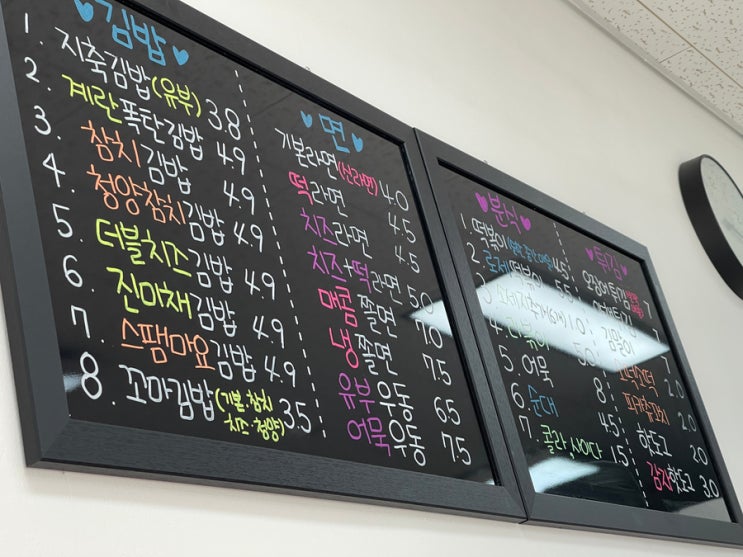 김밥
1. 지축김밥(유부) 3.8
2. 계란폭탄김밥 4.9
3. 참치김밥 4.9
4. 청양참치김밥 4.9
5. 더블치즈김밥 4.9
6. 진미채김밥 4.9
7. 스팸마요김밥 4.9
8. 꼬마김밥(기본·참치 치즈·청양) 3.5
면
기본라면(신라면) 4.0
떡라면 4.5
치즈라면 4.5
치즈+떡라면 5.0
매콤쫄면 7.0
냉쫄면 7.5
유부우동 6.5
어묵우동 7.5
분식
1. 떡볶이 4.5
2. 로제떡볶이 5.5
5.0
5. 어묵 8
6. 순대 4.5
7. 콜라, 사이다 1.5
튀김
오징어튀김 7
김말이
피카츄꼬치 2.0
핫도그 2.0
감자핫도그 3.0